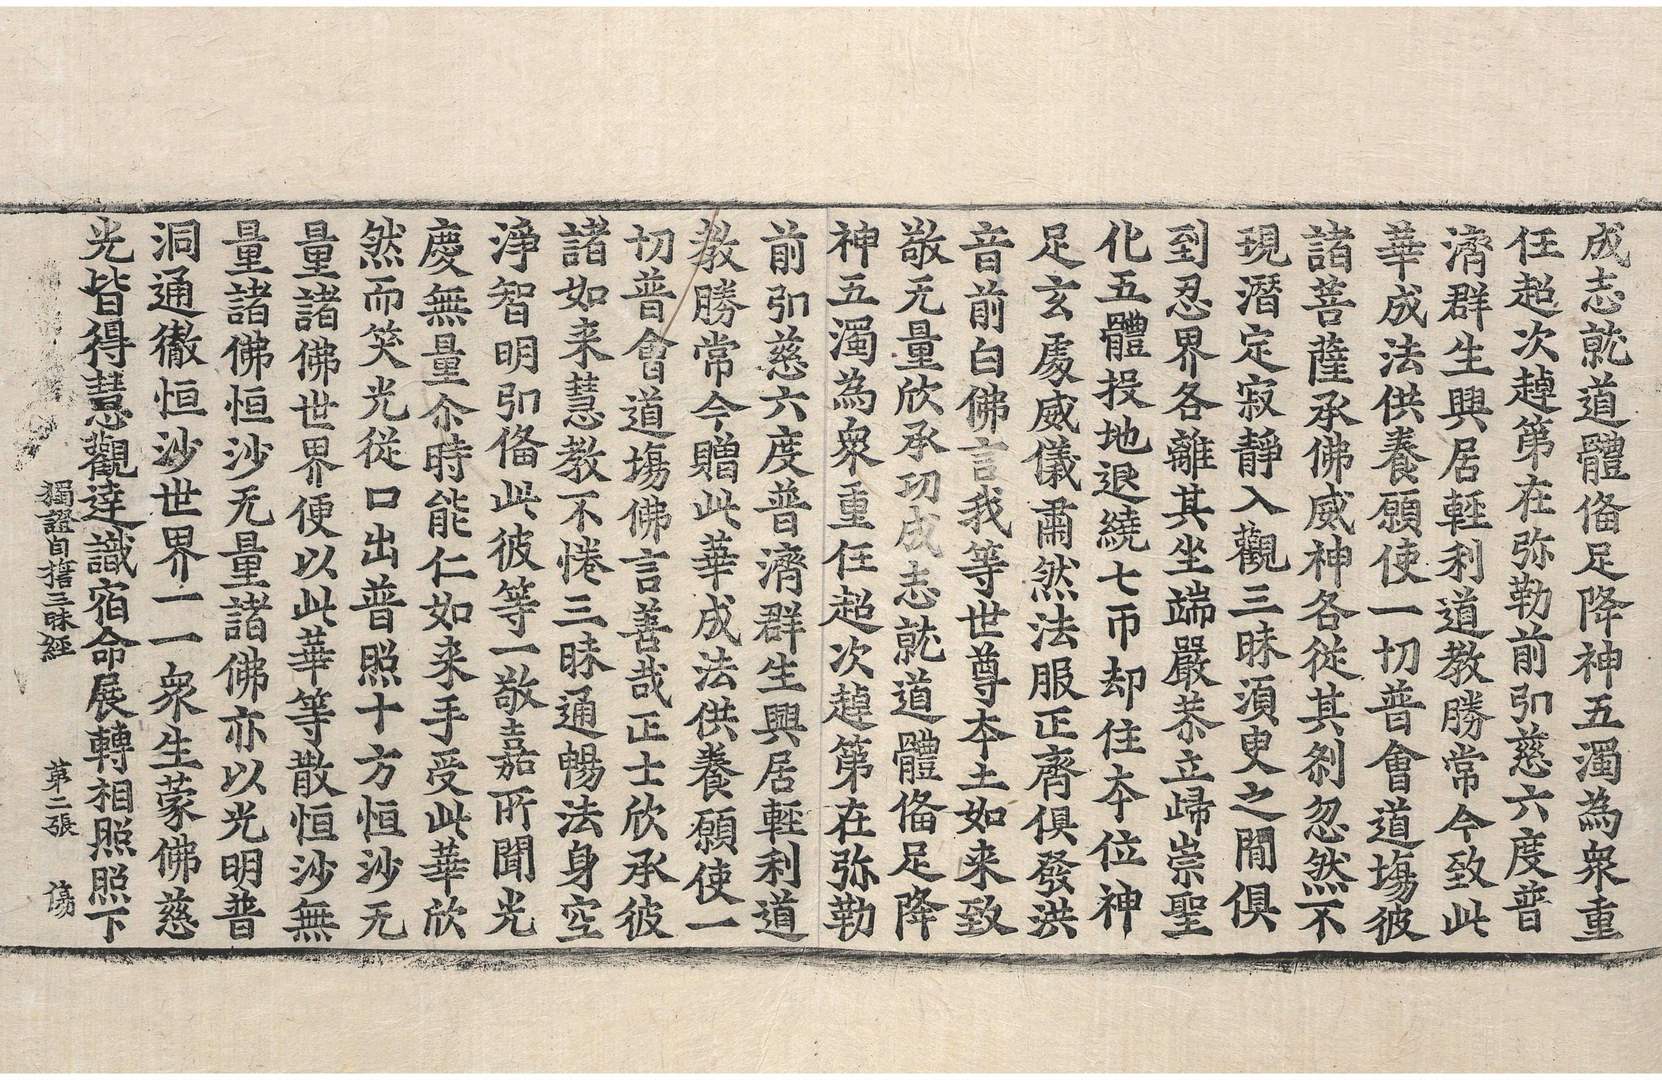 成志就道體俻足降神五濁為衆重
任超次踔第在弥勒前引慈六度普
濟群生興居輕利道教勝常今致此
華成法供養願使一切普會道場彼
諸菩薩承佛威神各從其刹忽然不
現潛定寂靜入觀三昧須臾之間俱
到忍界各離其坐端嚴恭立歸崇聖
化五體投地退繞七帀却住夲位神
足玄處威儀肅然法服正齊俱發洪
音前白佛言我等世尊夲土如来致
敬无量欣承功成志就道體俻足降
神五濁為衆重任超次踔第在弥勒
前引慈六度普濟群生興居輕利道
教勝常今贈此華成法供養願使一
切普會道場佛言善哉正士欣承彼
諸如来慧教不惓三昧通暢法身空
淨智明引俻此彼等一敬嘉所聞光
慶無量尒時能仁如来手受此華欣
然而笑光従口出普照十方恒沙无
量諸佛世界便以此華等散恒沙無
量諸佛恒沙无量諸佛亦以光明普
洞通徹恒沙世界一一衆生蒙佛慈
光皆得慧觀達識宿命展轉相照照下
獨證自誓三昧經 第二張 傷